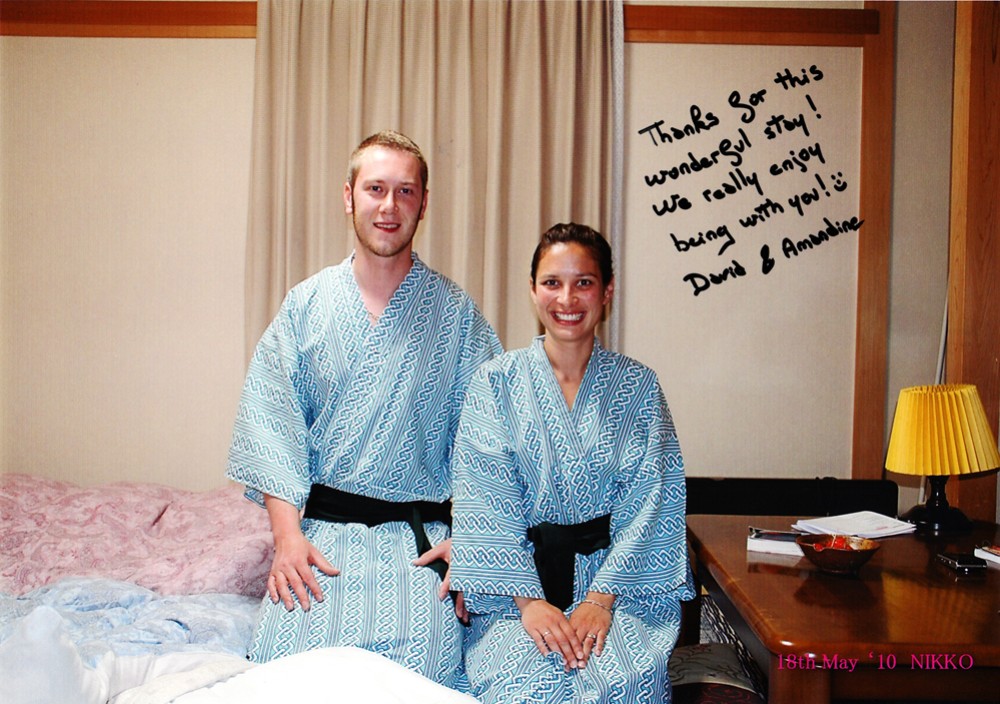 Thanks for this
wonderful stay!
We really enjoy
being with you! :)
David & Amandine
18th May '10 NIKKO